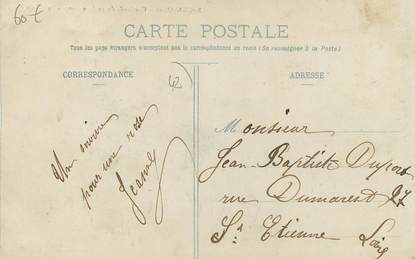 60 €
CARTE POSTALE
Tous les pays étrangers n'acceptent pas la correspondance au recto (Se renseigner à la Poste)
CORRESPONDANCE
ADRESSE
Un sourire
pour une rose
Jeanne
Monsieur
Jean Baptiste Duport
rue Dumarest 27
St Etienne
Loire